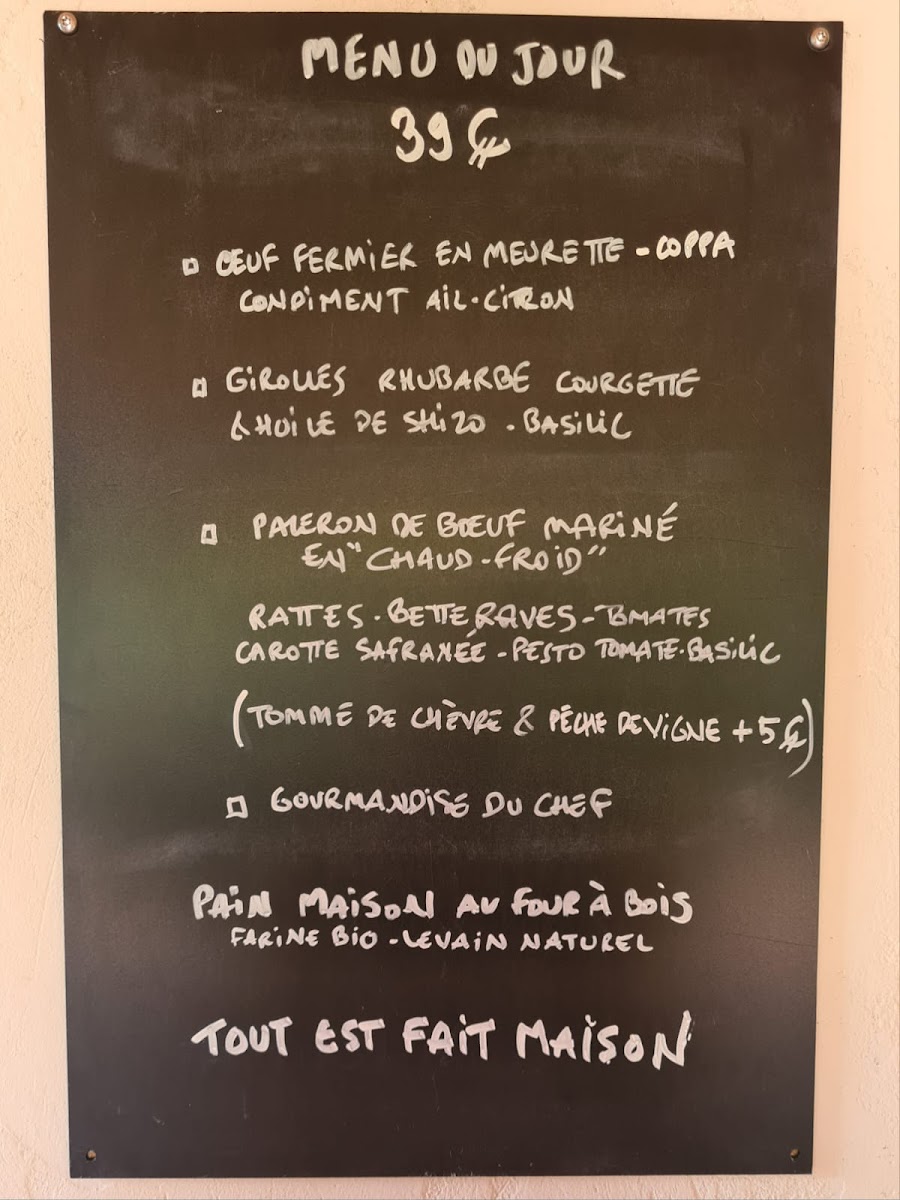 MENU DU JOUR
39 €
ŒUF FERMIER EN MEURETTE - COPPA
CONDIMENT AIL - CITRON
GIROLLES RHUBARBE COURGETTE
& HUILE DE SHIZO - BASILIC
PALERON DE BŒUF MARINÉ
EN "CHAUD-FROID"
RATTES - BETTERAVES - TOMATES
CAROTTE SAFRANÉE - PESTO TOMATE-BASILIC
(TOMME DE CHÈVRE & PÊCHE DE VIGNE + 5 €)
GOURMANDISE DU CHEF
PAIN MAISON AU FOUR À BOIS
FARINE BIO - LEVAIN NATUREL
TOUT EST FAIT MAISON